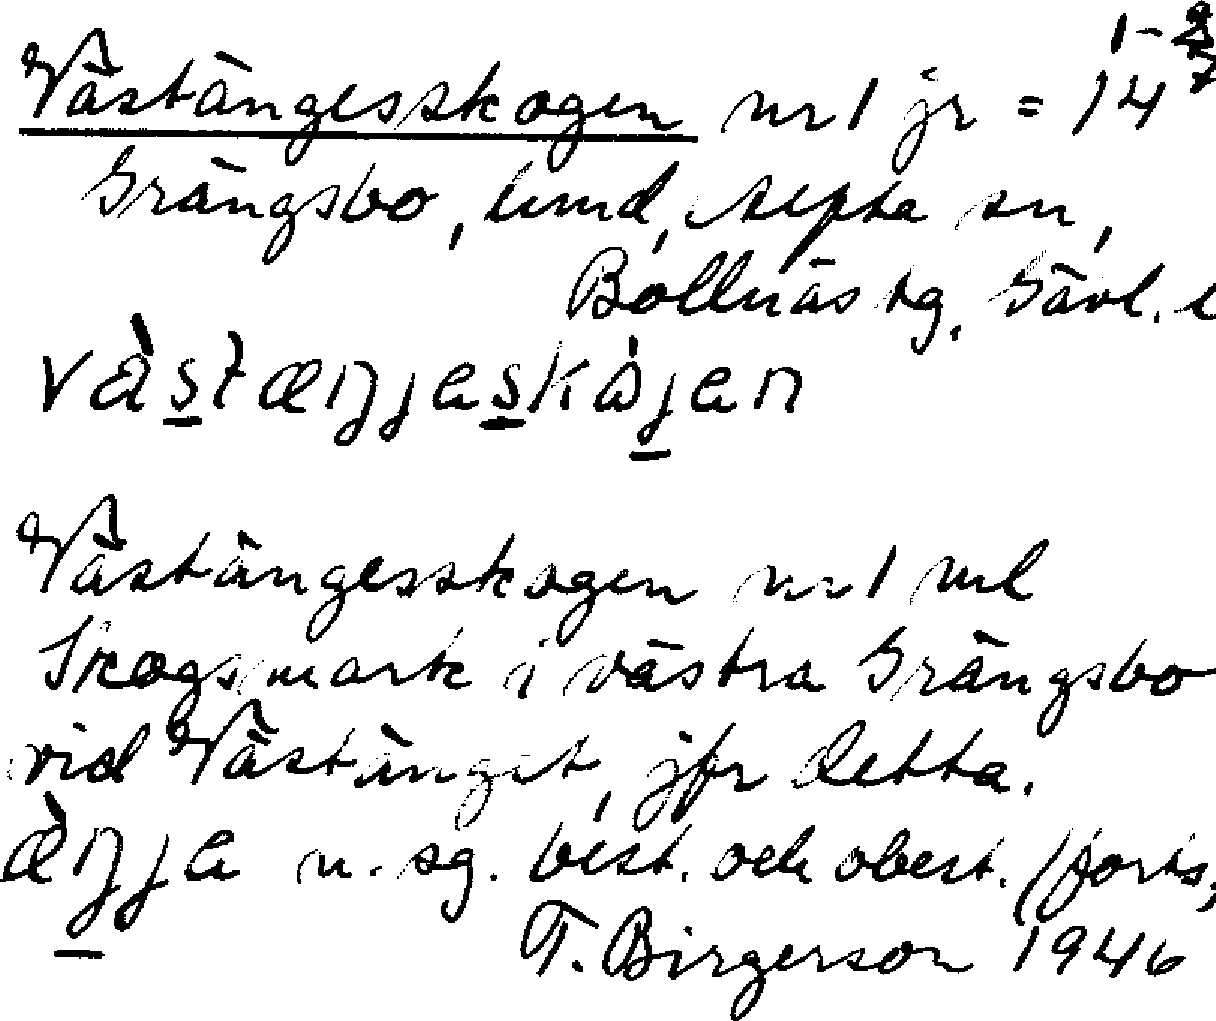 Västängesskogen nr 1 jr = 14 1-
Grängsbo, lund, Alfta sn,
Bollnäs tg. Gävl. l
vàstæŋjeskòjen
Västängesskogen nr 1 ml
Skogsmark i västra Grängsbo
vid Västänget, jfr detta.
æ̀ŋje n. sg. best. och obest. (forts,
T. Birgerson 1946